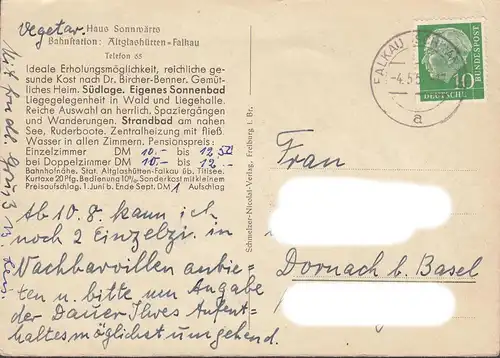 vegetar.
Haus Sonnwärts
Bahnstation: Altglashütten-Falkau
Telefon 65
Ideale Erholungsmöglichkeit, reichliche ge-
sunde Kost nach Dr. Bircher-Benner. Gemüt-
liches Heim. Südlage. Eigenes Sonnenbad
Liegegelegenheit in Wald und Liegehalle.
Reiche Auswahl an herrlich. Spaziergängen
und Wanderungen. Strandbad am nahen
See, Ruderboote. Zentralheizung mit fließ.
Wasser in allen Zimmern. Pensionspreis:
Einzelzimmer DM 10.- bis 12.50
bei Doppelzimmer DM 10.- bis 12.-
Bahnhofnähe. Stat. Altglashütten-Falkau üb. Titisee.
Kurtaxe 20 Pfg. Bedienung 10%. Sonderkost mit kleinem
Preisaufschlag. 1. Juni b. Ende Sept. DM 1 Aufschlag
Ab 10.8. kann ich
noch 2 Einzelzi. in
Nachbarvillen anbie-
ten u. bitte um Angabe
der Dauer Ihres Aufent-
haltes möglichst umgehend.
Mit frdl.
Schmelzer-Nicolai-Verlag, Freiburg i. Br.
FALKAU
-4.5
a
10
DEUTSCHE
BUNDESPOST
Frau
Dornach b. Basel